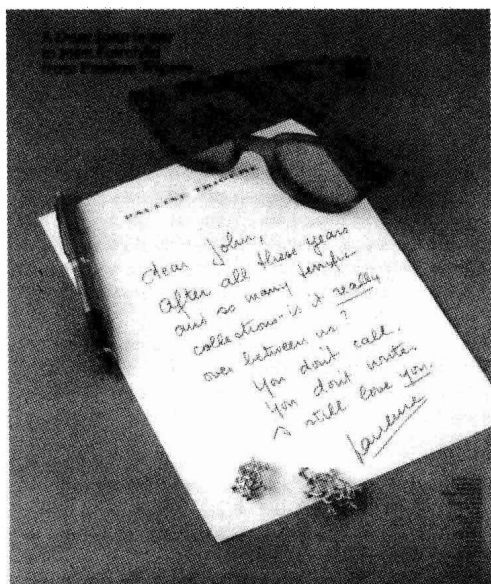 A Dear John letter
PAULINE TRIGÈRE
dear John,
after all these years
and so many terrific
collections - is it really
over between us?
You don't call.
You don't write.
I still love you.
Pauline